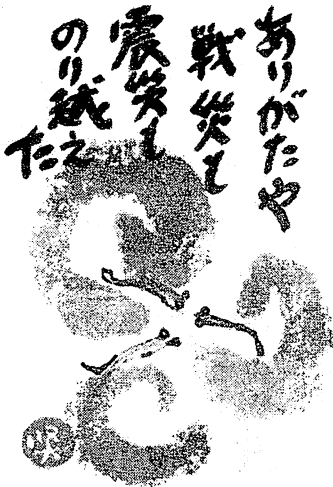 ありがたや
戦災も
震災も
のり越え
た